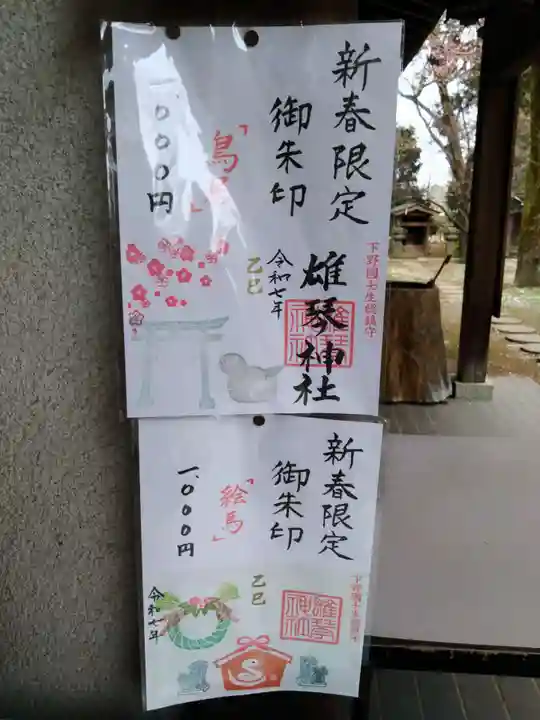 新春限定
御朱印
「鳥居」
一、〇〇〇円
下野國壬生総鎮守
雄琴神社
雄琴神社
令和七年
乙巳
新春限定
御朱印
「絵馬」
一、〇〇〇円
下野國壬生総鎮守
雄琴神社
乙巳
令和七年